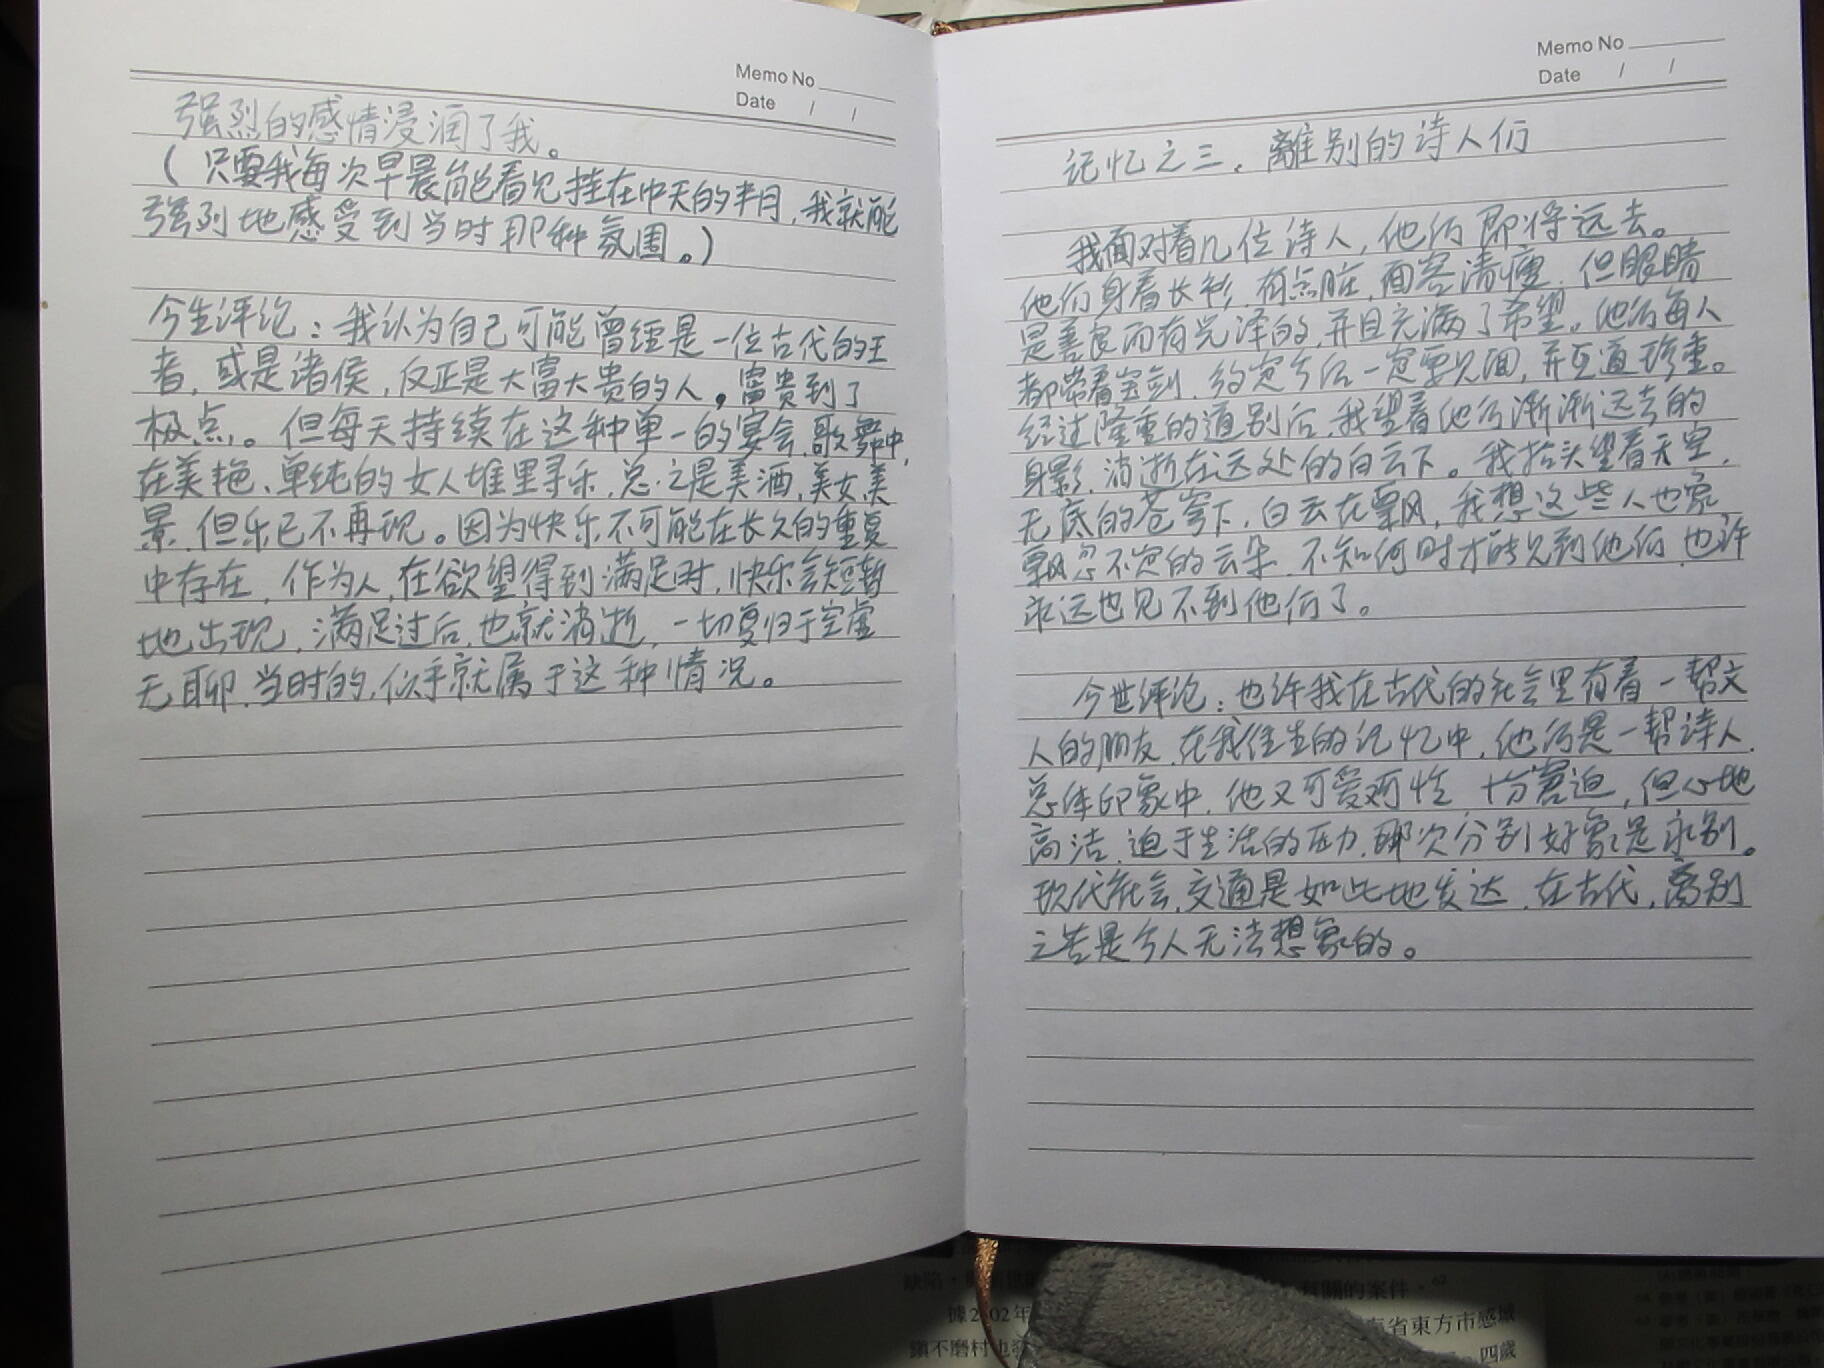 Memo No
Date / /
强烈的感情浸润了我。
(只要我每次早晨能看见挂在中天的半月,我就能
强烈地感受到当时那种氛围。)
今生评论:我认为自己可能曾经是一位古代的王
者,或是诸侯,反正是大富大贵的人。富贵到了
极点。但每天持续在这种单一的宴会、歌舞中,
在美艳、单纯的女人堆里寻乐,总之是美酒,美女,美
景,但乐已不再现。因为快乐不可能在长久的重复
中存在,作为人,在欲望得到满足时,快乐会短暂
地出现,满足过后,也就消逝,一切复归于空虚
无聊,当时的,似乎就属于这种情况。
Memo No
Date / /
记忆之三、離别的诗人们
我面对着几位诗人,他们即将远去。
他们身着长衫,有点脏,面容清瘦,但眼睛
是善良而有光泽的,并且充满了希望。他们每人
都带着宝剑,约定今后一定要见面,并互道珍重。
经过隆重的道别后,我望着他们渐渐远去的
身影,消逝在远处的白云下。我抬头望着天空,
无底的苍穹下,白云在飘,我想这些人也象
飘忽不定的云朵,不知何时才能见到他们,也许
永远也见不到他们了。
今世评论:也许我在古代的社会里有着一帮文
人的朋友,在我往生的记忆中,他们是一帮诗人,
总体印象中,他又可爱可怜,十分窘迫,但心地
高洁,迫于生活的压力,那次分别好象是永别。
现代社会,交通是如此地发达,在古代,离别
之苦是今人无法想象的。
有關的案件。62
據2002年
省東方市感城
鎮不磨村也發
四歲